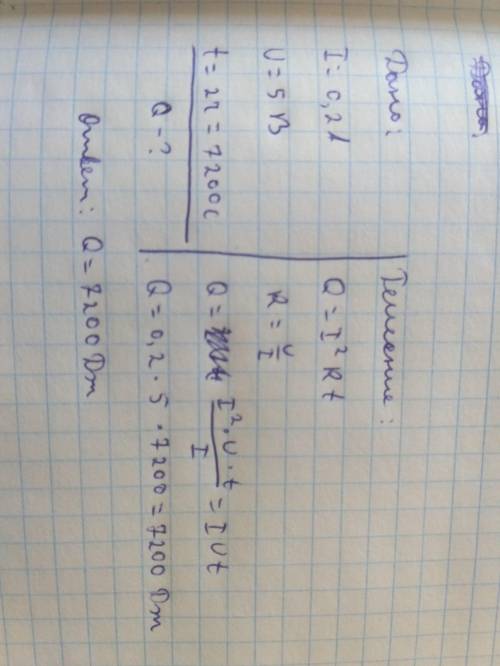 Дано:
I = 0,2 A
U = 5 В
t = 2ч = 7200с
Q - ?
Решение:
Q = I² R t
R = U/I
Q = I²·U·t / I = I U t
Q = 0,2 · 5 · 7200 = 7200 Dm
Ответ: Q = 7200 Dm